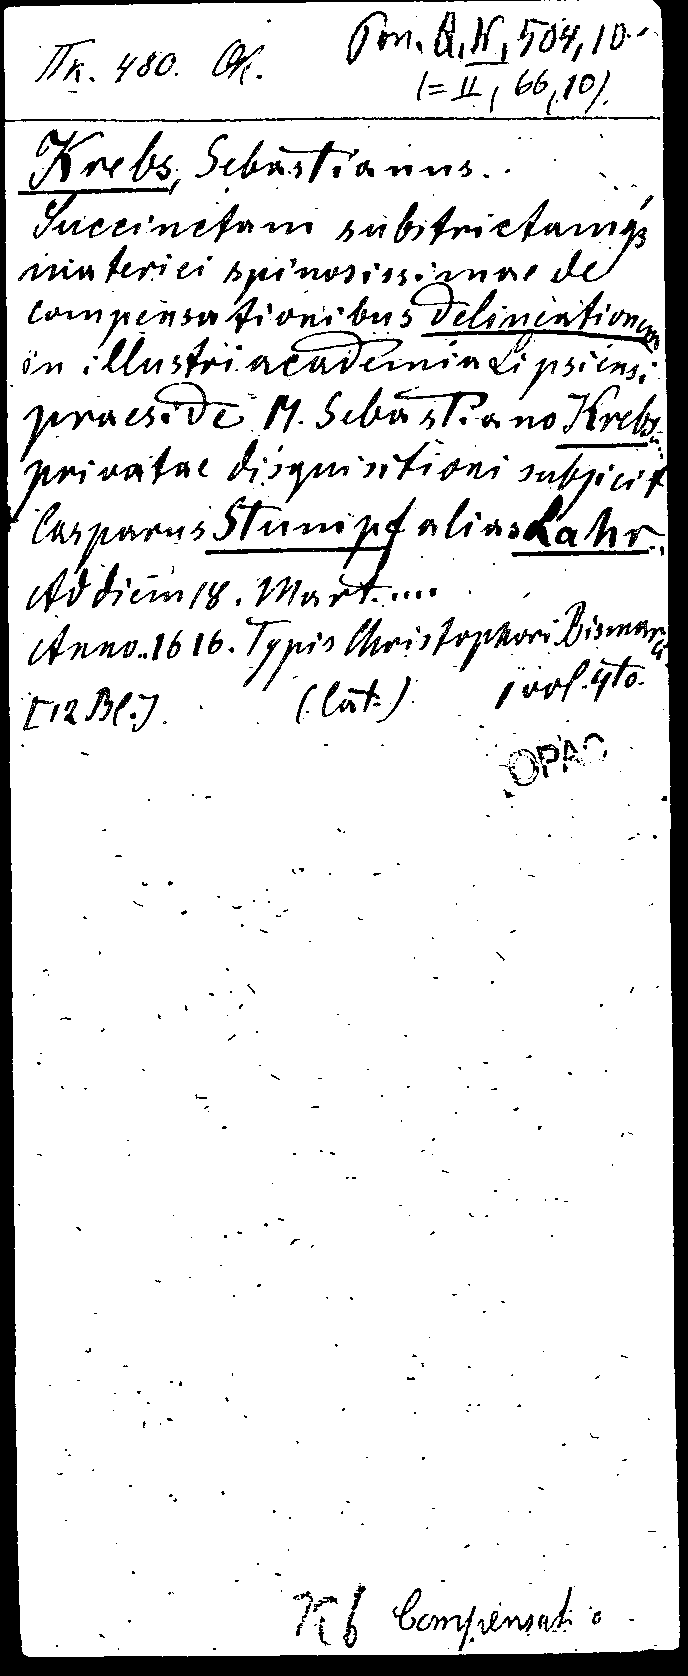 Пк. 480. Ok. Pon. Q. N, 504, 10.
(= II, 66, 10).
Krebs, Sebastianus.
Succinctam substrictamq3
materiei spinosissimae de
compensationibus delineationem
in illustri academia Lipsiensi
praeside M. Sebastiano Krebs
privatae disquisitioni subjicit
Casparus Stumpf alias Lahr.
Ad diem 18. Mart....
Anno.. 1616. Typis Christophori Bismarci
[12 Bl.] (lat.) 1 vol. 4to.
OPAC
Compensatio